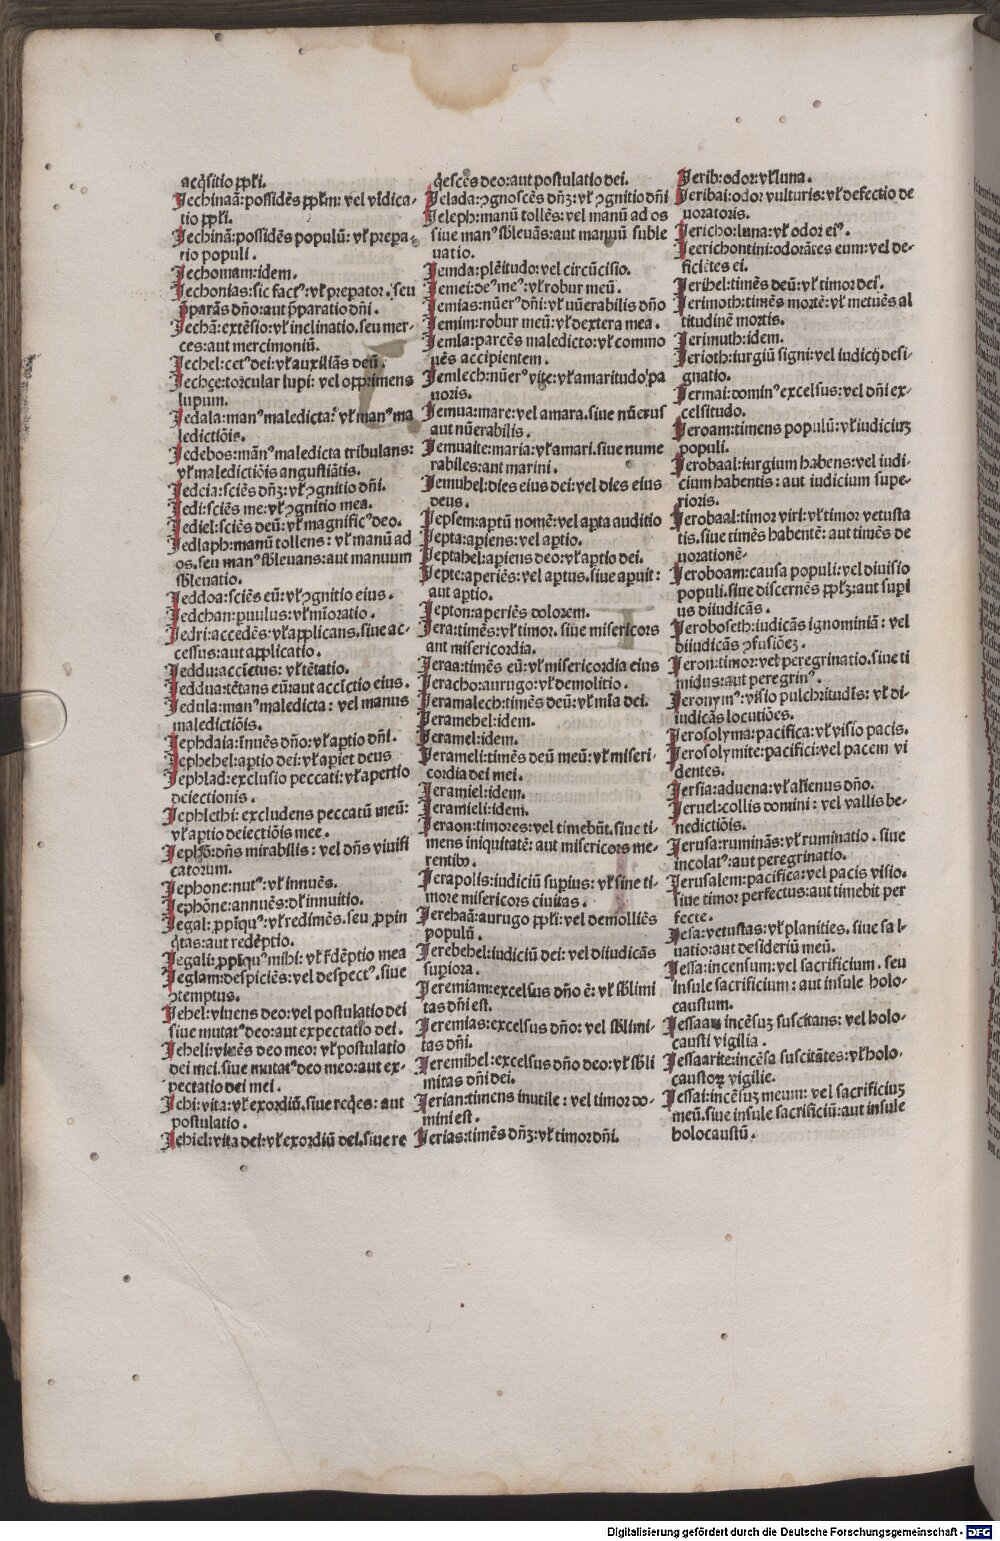 acq̄sitio ꝓpłi.
Jechinaā:possidēs ꝓpłm: vel vīdica-
tio ꝓpłi.
Jechinā:possidēs populū: vł prepa-
rio populi.
Jechomam:idem.
Jechonias:sic factꝰ:vł preꝑator. seu
p̄parās dn̄o:aut p̄paratio dn̄i.
Jechā:extēsio:vł inclinatio.seu mer-
ces:aut mercimoniū.
Jechel:cetꝰ dei:vł auxiliās deū.
Jechçe:torcular lupi: vel opprimens
lupum.
Jedala:manꝰ maledicta: vł manꝰ ma
ledictiōis.
Jedebos:mānꝰ maledicta tribulans:
vł maledictiōis angustiātis.
Jedcia:sciēs dn̄ꝫ:vł ꝯgnitio dn̄i.
Jedi:sciēs me:vł ꝯgnitio mea.
Jediel:sciēs deū:vł magnificꝰ deo.
Jedlaph:manū tollens: vł manū ad
os.seu manꝰ sb̄levans:aut manuum
sb̄leuatio.
Jeddoa:sciēs eū:vł ꝯgnitio eius.
Jedchan:puulus:vł mīoratio.
Jedri:accedēs:vł applicans.siue ac-
cessus:aut applicatio.
Jeddu:accīctus: vł tētatio.
Jeddua:tētans eū:aut accīctio eius.
Jedula:manꝰ maledicta: vel manus
maledictiōis.
Jephdaia:īnuēs dn̄o:vł aꝑtio dn̄i.
Jephehel:aꝑtio dei:vł aꝑiet deus
Jephlad:exclusio peccati:vł apertio
deiectionis.
Jephlethi:excludens peccatū meū:
vł aꝑtio deiectiōis mee.
Jephō:dn̄s mirabilis: vel dn̄s viuifi
catorum.
Jephone:nutꝰ:vł innuēs.
Jephōne:annuēs:vł innuitio.
Jegal:ꝓpīquꝰ:vł redimēs.seu ꝓpin
q̄tas:aut redēptio.
Jegali:ꝓpīquꝰ mihi: vł r̄dēptio mea
Jeglam:despiciēs:vel despectꝰ.siue
ꝯtemptus.
Jehel:viuens deo:vel postulatio dei
siue mutatꝰ deo:aut expectatio dei.
Jeheli:viuēs deo meo: vł postulatio
dei mei.siue mutatꝰ deo meo:aut ex-
pectatio dei mei.
Jehi:vita:vł exordiū.siue req̄es: aut
postulatio.
Jehiel:vita dei:vł exordiū dei.siue re
q̄escēs deo:aut postulatio dei.
Jelada:ꝯgnoscēs dn̄ꝫ:vł ꝯgnitio dn̄i
Jeleph:manū tollēs: vel manū ad os
siue manꝰ sb̄leuās:aut manuū suble
uatio.
Jemda:plēitudo:vel circūcisio.
Jemei:deꝰ meꝰ:vł robur meū.
Jemias:nūerꝰ dn̄i: vł nūerabilis dn̄o
Jemim:robur meū:vł dextera mea.
Jemla:parcēs maledicto:vł commo
uēs accipientem.
Jemlech:nūerꝰ vite:vł amaritudo pa
uoris.
Jemua:mare:vel amara.siue nūerus
aut nūerabilis.
Jemuaite:maria:vł amari.siue nume
rabiles:aut marini.
Jemuhel:dies eius dei:vel dies eius
deus.
Jepsem:aꝑtū nomē:vel aꝑta auditio
Jepta:aꝑiens: vel aꝑtio.
Jeptahel:aꝑiens deo:vł aꝑtio dei.
Jepte:aperiēs: vel aꝑtus.siue aꝑuit:
aut aꝑtio.
Jepton:aperiēs dolorem.
Jera:timēs:vł timor. siue misericors
aut misericordia.
Jeraa:timēs eū:vł misericordia eius
Jeracho:aurugo:vł demolitio.
Jeramalech:timēs deū:vł mīa dei.
Jeramehel:idem.
Jeramel:idem.
Jerameli:timēs deū meū:vł miseri-
cordia dei mei.
Jeramiel:idem.
Jeramieli:idem.
Jeraon:timores:vel timebūt.siue ti-
mens iniquitatē: aut misericors me-
rentibꝫ.
Jerapolis:iudiciū suꝑius: vł sine ti-
more misericors ciuitas.
Jerehaā:aurugo ꝓpłi:vel demolliēs
populū.
Jerebehel:iudiciū dei: vel diiudicās
suꝑiora.
Jeremiam:excelsus dn̄o ē: vł sb̄limi
tas dn̄i est.
Jeremias:excelsus dn̄o: vel sb̄limi-
tas dn̄i.
Jeremihel:excelsus dn̄o deo:vł sb̄li
mitas dn̄i dei.
Jerian:timens inutile: vel timor do-
mini est.
Jerias:timēs dn̄ꝫ:vł timor dn̄i.
Jerib:odor:vł luna.
Jeribai:odor vulturis: vł defectio de
uoratoris.
Jericho:luna:vł odor eiꝰ.
Jeerichontini:odorātes eum:vel de-
ficiētes ei.
Jerihel:timēs deū:vł timor dei.
Jerimoth:timēs mortē:vł metuēs al
titudinē mortis.
Jerimuth:idem.
Jerioth:iurgiū signi:vel iudicij desi-
gnatio.
Jermai:dominꝰ excelsus:vel dn̄i ex-
celsitudo.
Jeroam:timens populū:vł iudiciuꝫ
populi.
Jerobaal:iurgium habens:vel iudi-
cium habentis: aut iudicium supe-
rioris.
Jerobaal:timor viri:vł timor vetusta
tis.siue timēs habentē: aut timēs de
uorationē.
Jeroboam:causa populi:vel diuisio
populi.siue discernēs ꝓpłꝫ:aut suꝑi
us diiudicās.
Jeroboseth:iudicās ignominiā: vel
diiudicās ꝯfusiōeꝫ.
Jeron:timor:vel peregrinatio.siue ti
midus:aut peregrinꝰ.
Jeronymꝰ:visio pulchritudīs: vł di-
iudicās locutiōes.
Jerosolyma:pacifica:vł visio pacis.
Jerosolymite:pacifici:vel pacem vi
dentes.
Jersia:aduena:vł alienus dn̄o.
Jeruel:collis domini: vel vallis be-
nedictiōis.
Jerusa:ruminās:vł ruminatio. siue
incolatꝰ:aut peregrinatio.
Jerusalem:pacifica:vel pacis visio.
siue timor perfectus:aut timebit per
fecte.
Jesa:vetustas:vł planities. siue sal-
uatio:aut desideriū meū.
Jessa:incensum:vel sacrificium. seu
insule sacrificium: aut insule holo-
caustum.
Jessaam:incēsuꝫ suscitans: vel holo-
causti vigilia.
Jessaarite:incēsa suscitātes:vł holo-
caustoꝝ vigilie.
Jessai:incēsuꝫ meum: vel sacrificiuꝫ
meū.siue insule sacrificiū:aut insule
holocaustū.
Digitalisierung gefördert durch die Deutsche Forschungsgemeinschaft - DFG